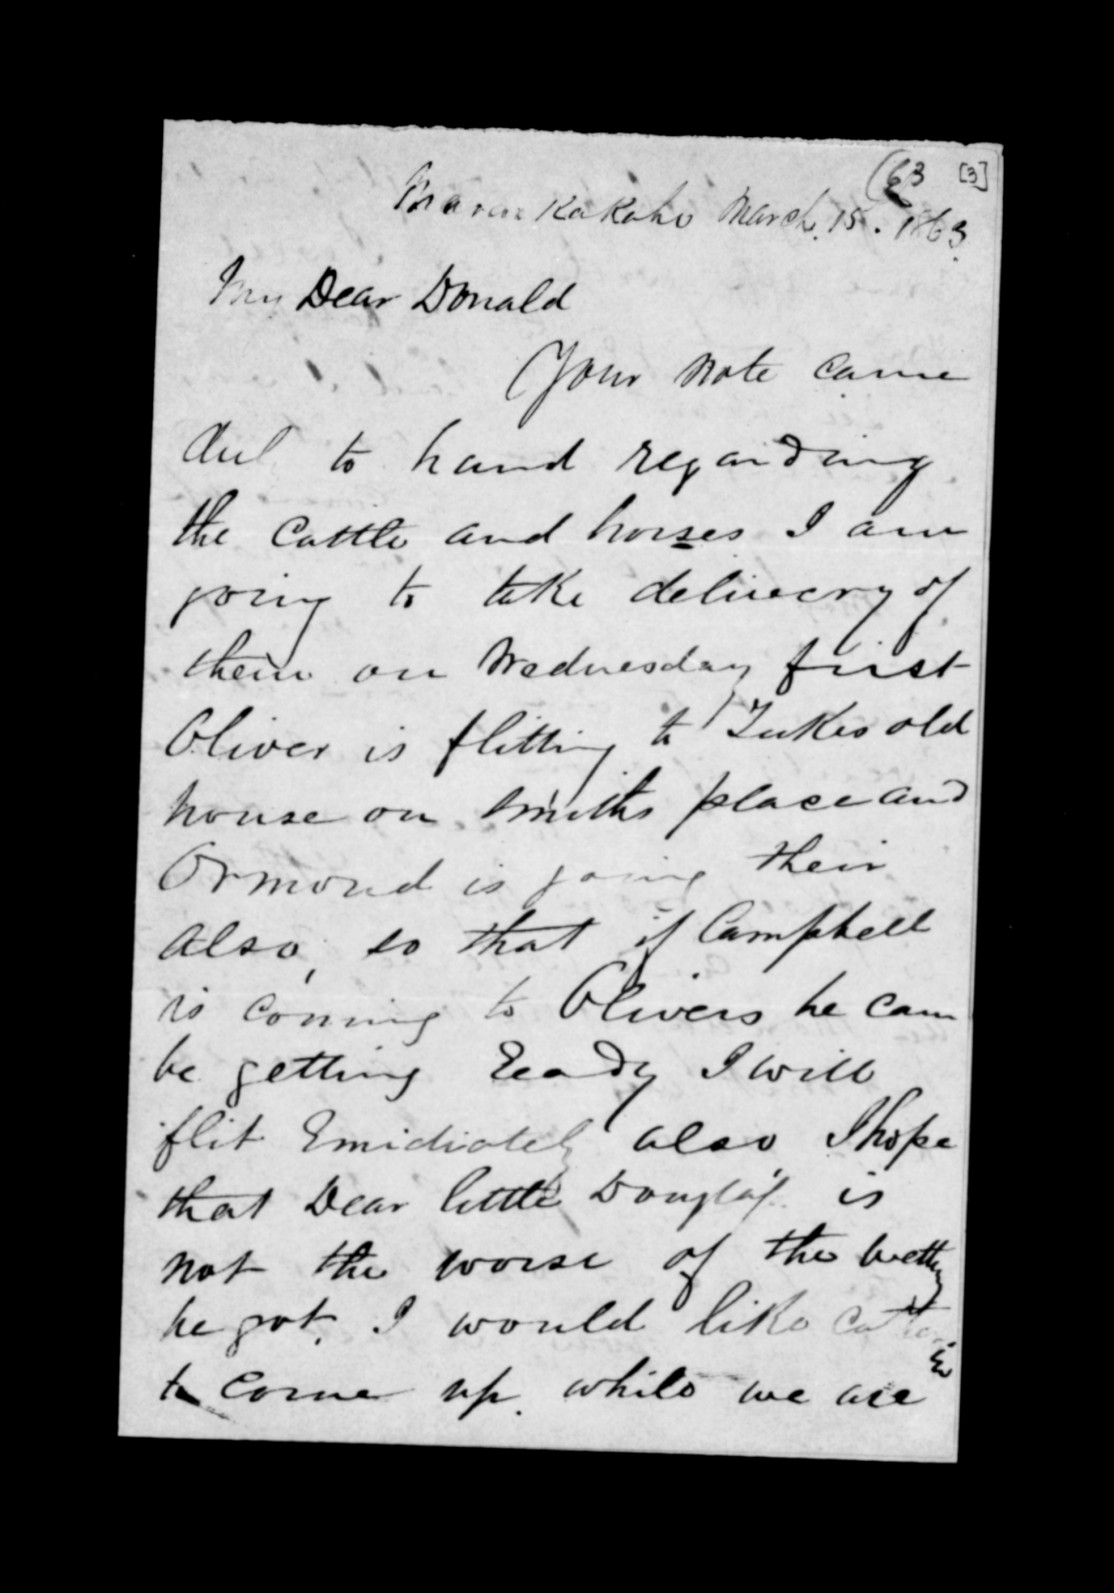 (63 [3]
Maraekakaho March. 15. 1863.
My Dear Donald
Your note came
due to hand regarding
the Cattle and horses I am
going to take delivery of
them on Wednesday first
Oliver is flitting to old
house on Smiths place and
Ormond is going their
also, so that if Campbell
is coming to Olivers he can
be getting Ready I will
flit Emidiately also I hope
that Dear little Douglas is
not the worse of the wetting
he got. I would like
to come up. while we are